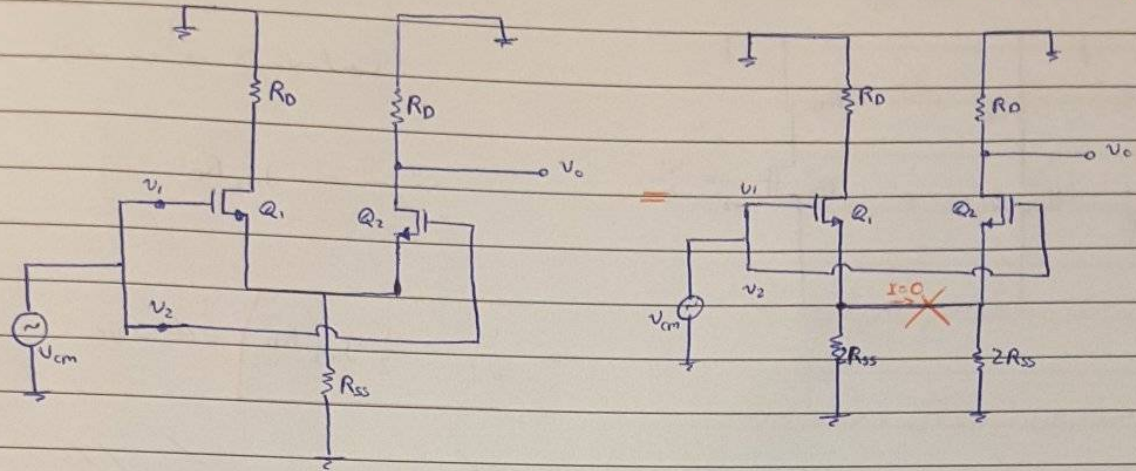 RD
RD
vo
v1
Q1
Q2
v2
vcm
Rss
=
RD
RD
vo
v1
Q1
Q2
v2
I=0
vcm
2Rss
2Rss